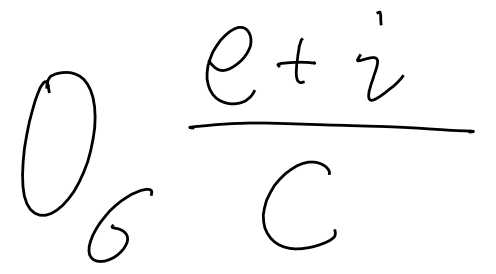 O₆ \frac{e+i}{C}